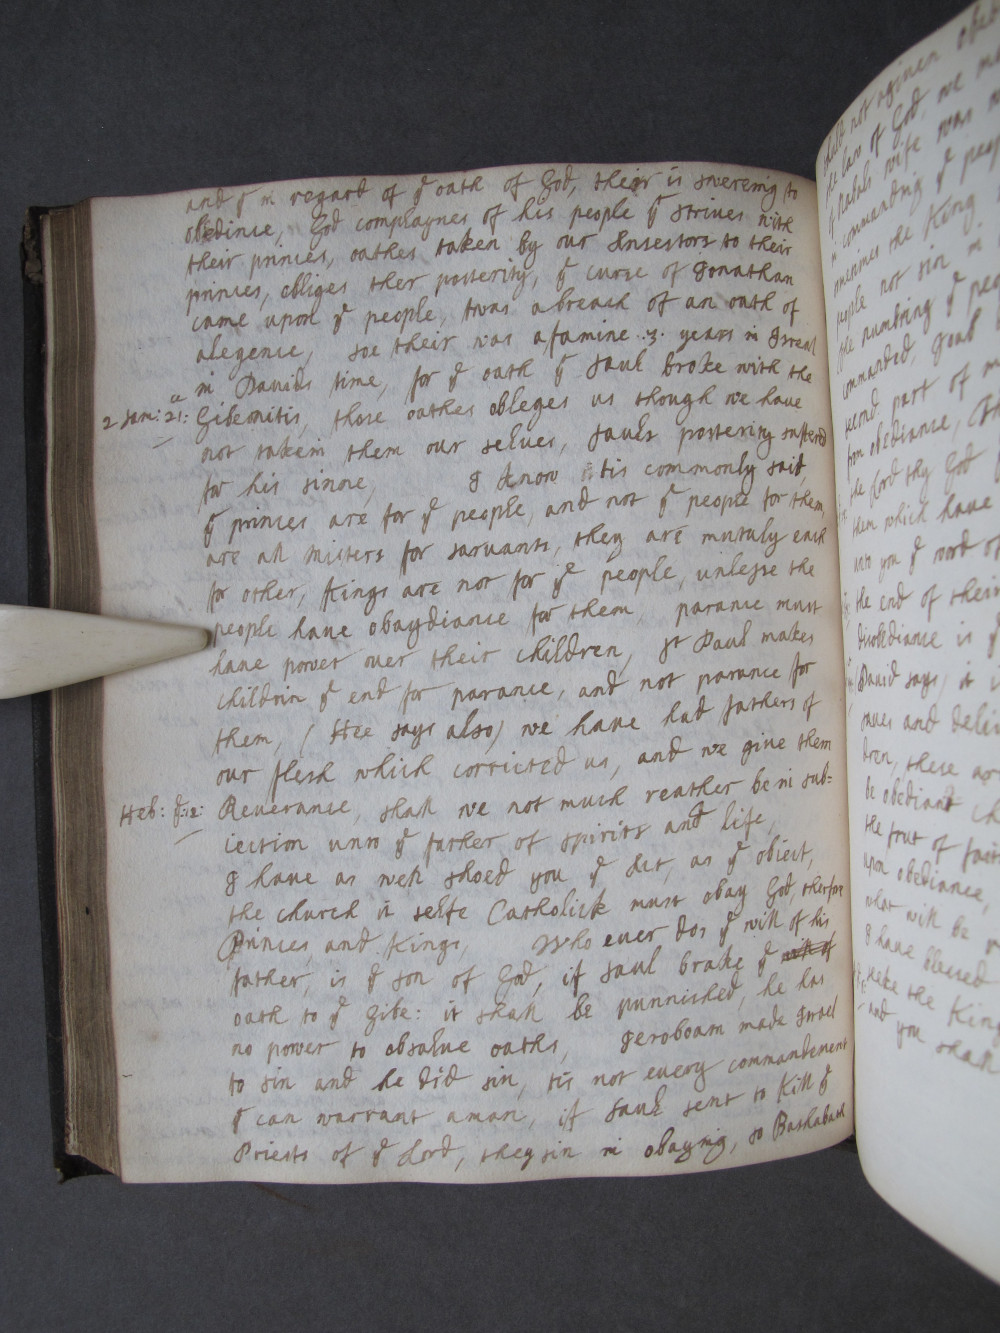 and yt in regard of ye oath of God, their is swereing to
obedince, God complaynes of his people yt strives with
their princes, oathes taken by our Ansestors to their
princes, obliges ther posterity, ye curse of Jonathan
came upon ye people, twas a breach of an oath of
alegence, soe their was a famine .3. years in Israel
in Davids time, for ye oath yt Saul broke with the
2 Sam: 21: Gibeonitis, those oathes obleges us though we have
not takein them our selves, Sauls postering suffered
for his sinne, I know tis commonly said,
yt princes are for ye people, and not ye people for them,
are all misters for sarvants, they are mutualy each
for other, Kings are not for ye people, unlesse the
people have obaydiance for them, parance must
have power over their children, St Paul makes
childrin ye end for parance, and not parance for
them, (Hee says also) we have had fathers of
our flesh which corricted us, and we give them
Heb: 12: Reverance, shall we not much reather be in sub=
iection unto ye father of spirits and life,
I have as well shoed you ye act, as ye obiect,
the church it selfe Catholick must obay God, therfore
Princes and Kings, Who ever dos ye will of his
father, is ye son of God, if Saul brake ye will of
oath to ye Gibe: it shall be punnished, he has
no power to obsalve oaths, Jeroboam made Israel
to sin and he did sin, tis not every commandement
yt can warrant a man, if Saul sent to Kill ye
Priests of ye Lord, they sin in obaying, so Bashabath
shall not
the law of God, we
of Nabals wife was
in commanding ye peop
the King
people not sin in
the numbring of ye peo
commanded, Joab
second part of m
from obediance,
the Lord thy God
them which have
unto you ye word of
the end of their
disobediance is y
David says, it i
saves and deli
dren, these ar
be obediant ch
the frut of fait
upon obediance,
what will be y
I have blessed
the King
and you shall